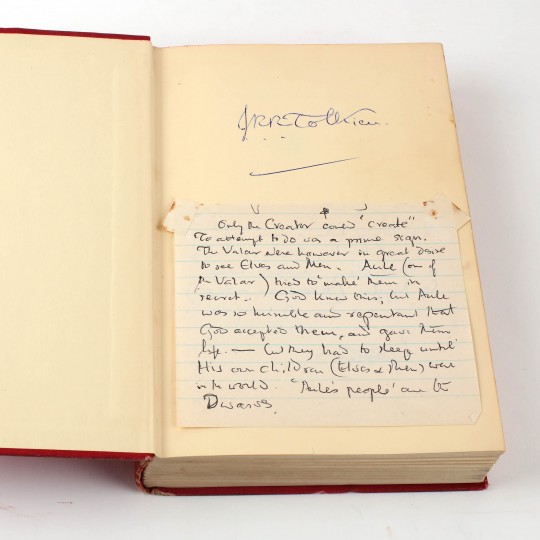 JRRTolkien.
Only the Creator could "create"
To attempt to do so was a prime
The Valar were however in great desire
to see Elves and Men. Aulë (one of
the Valar) tried to 'make' them in
secret. God knew this, but Aulë
was so humble and repentant that
God accepted them, and gave them
life. — but they had to sleep until
His own children (Elves & Men) were
in the world. 'Aulë's people' are the
Dwarves.